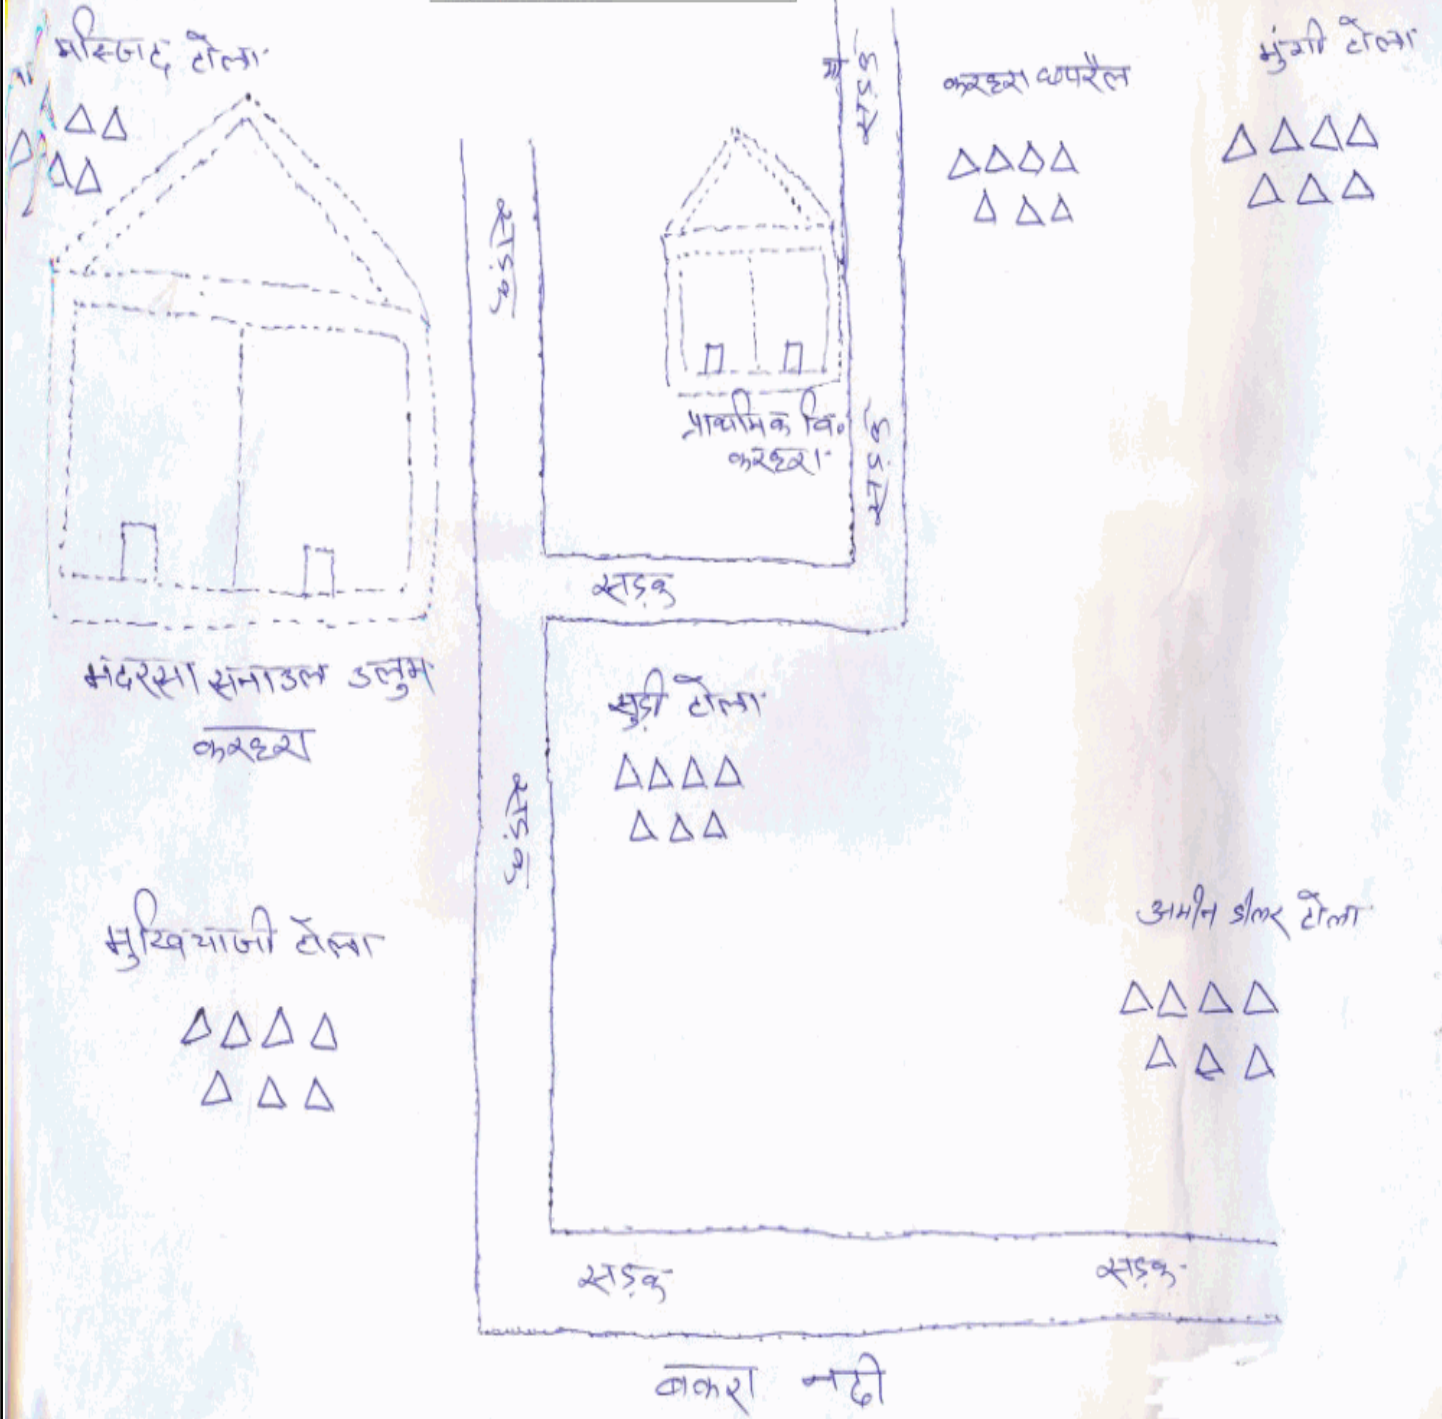 मस्जिद टोला
मुंशी टोला
करहरा छपरैल
सड़क
सड़क
प्राथमिक वि०
करहरा
सड़क
सड़क
मदरसा सनाउल उलुम
करहरा
सुड़ी टोला
सड़क
मुखियाजी टोला
अमीन डीलर टोला
सड़क
सड़क
बकरा नदी